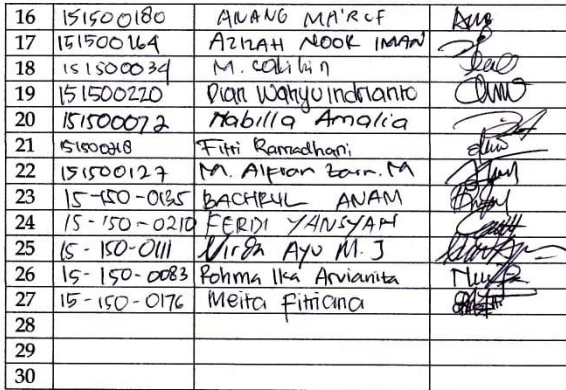 16 151500180 ANANG MA'RUF
17 151500164 AZIZAH NOOR IMAN
18 151500034 M. Colibin
19 151500220 Dian Wahyu Indrianto
20 151500072 Nabilla Amalia
21 151500218 Fitri Ramadhani
22 151500127 M. Alfian Zain. M
23 15-150-0135 BACHRUL ANAM
24 15-150-0210 FERDI YANSYAH
25 15-150-0111 Virga Ayu M. J
26 15-150-0083 Rohma Ika Arvianita
27 15-150-0176 Meita Fitriana
28
29
30